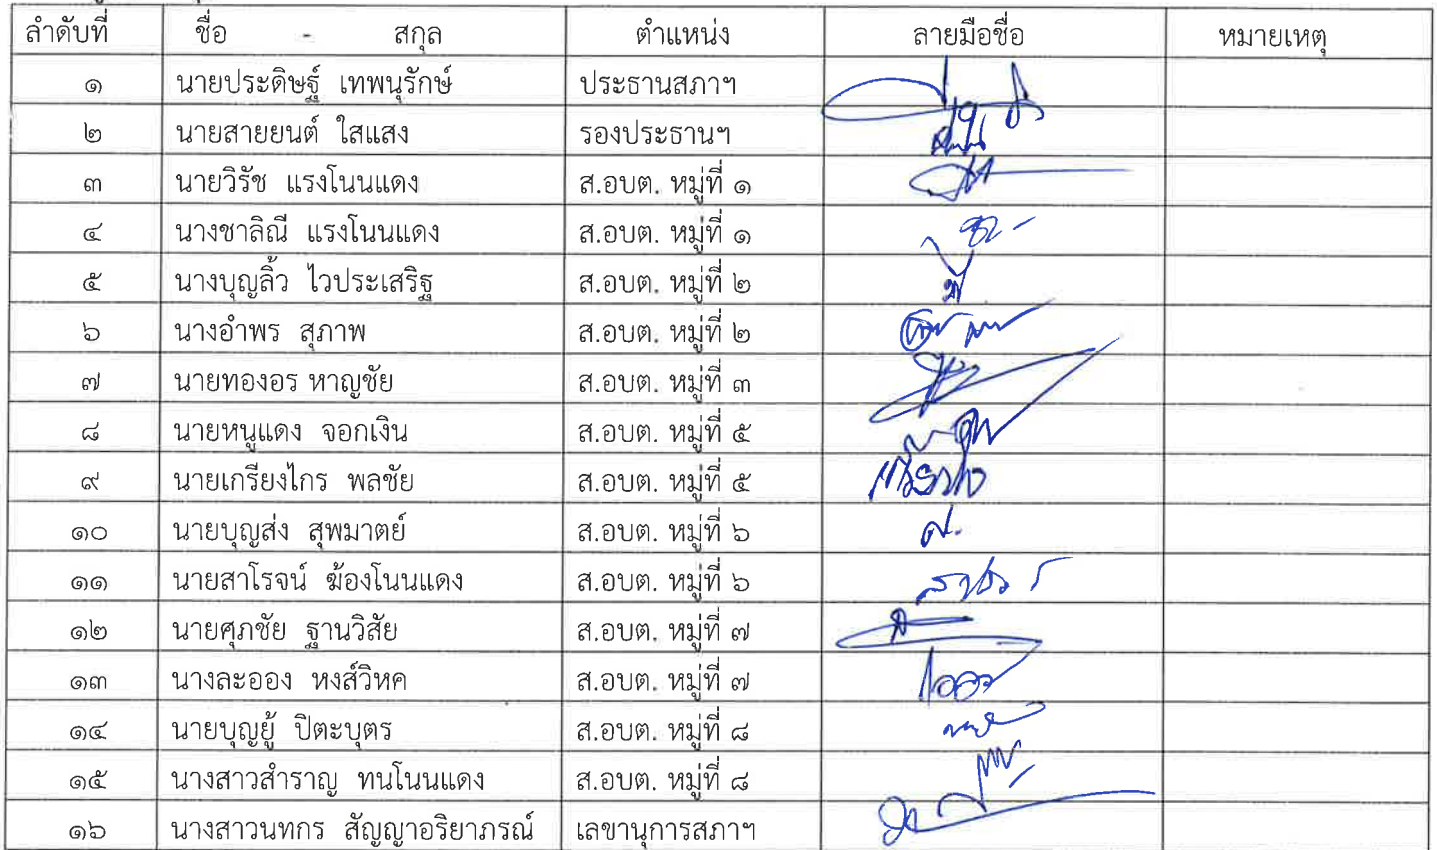 ลำดับที่ ชื่อ - สกุล ตำแหน่ง ลายมือชื่อ หมายเหตุ
๑ นายประดิษฐ์ เทพนุรักษ์ ประธานสภาฯ
๒ นายสายยนต์ ใสแสง รองประธานฯ
๓ นายวิรัช แรงโนนแดง ส.อบต. หมู่ที่ ๑
๔ นางชาลิณี แรงโนนแดง ส.อบต. หมู่ที่ ๑
๕ นางบุญลิ้ว ไวประเสริฐ ส.อบต. หมู่ที่ ๒
๖ นางอำพร สุภาพ ส.อบต. หมู่ที่ ๒
๗ นายทองอร หาญชัย ส.อบต. หมู่ที่ ๓
๘ นายหนูแดง จอกเงิน ส.อบต. หมู่ที่ ๕
๙ นายเกรียงไกร พลชัย ส.อบต. หมู่ที่ ๕
๑๐ นายบุญส่ง สุพมาตย์ ส.อบต. หมู่ที่ ๖
๑๑ นายสาโรจน์ ฆ้องโนนแดง ส.อบต. หมู่ที่ ๖
๑๒ นายศุภชัย ฐานวิสัย ส.อบต. หมู่ที่ ๗
๑๓ นางละออง หงส์วิหค ส.อบต. หมู่ที่ ๗
๑๔ นายบุญยู้ ปิตะบุตร ส.อบต. หมู่ที่ ๘
๑๕ นางสาวสำราญ ทนโนนแดง ส.อบต. หมู่ที่ ๘
๑๖ นางสาวนทกร สัญญาอริยาภรณ์ เลขานุการสภาฯ